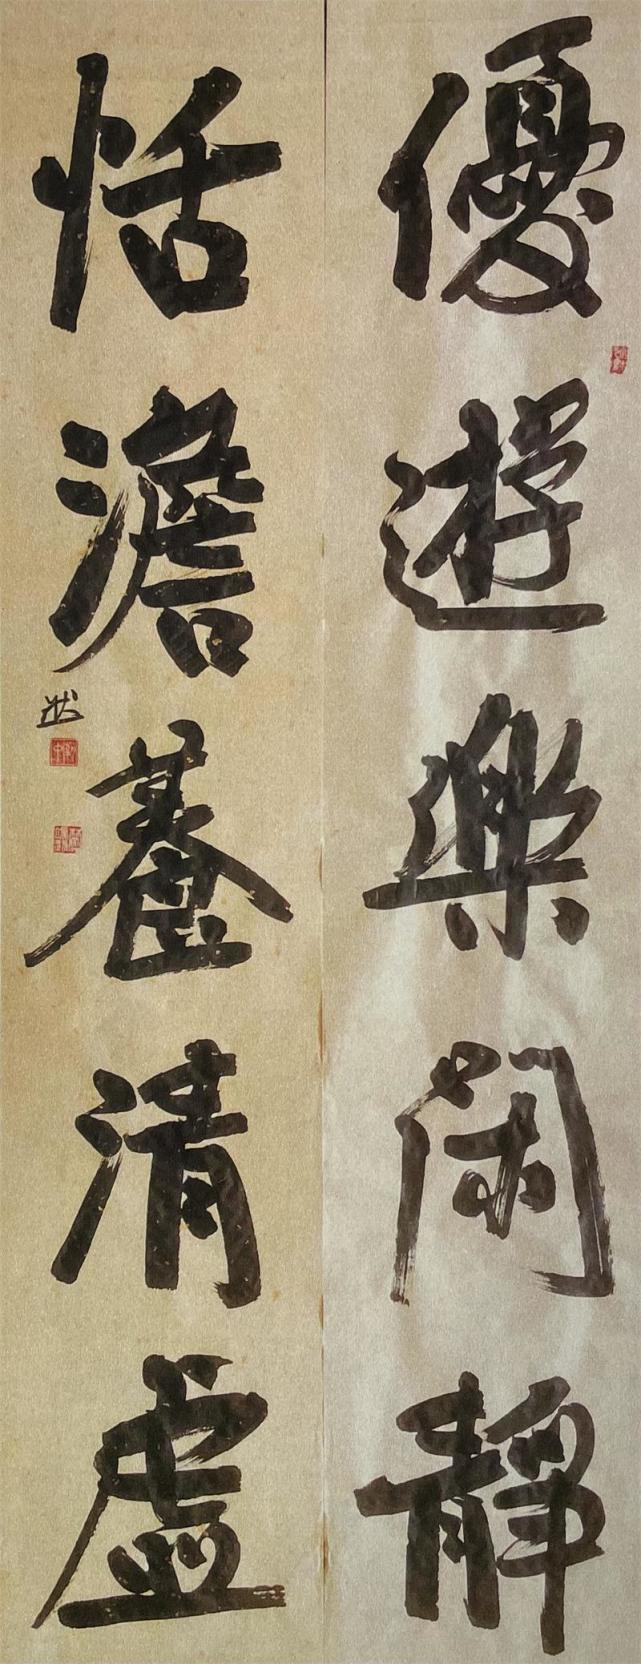 優遊樂閑靜
恬澹養清虛